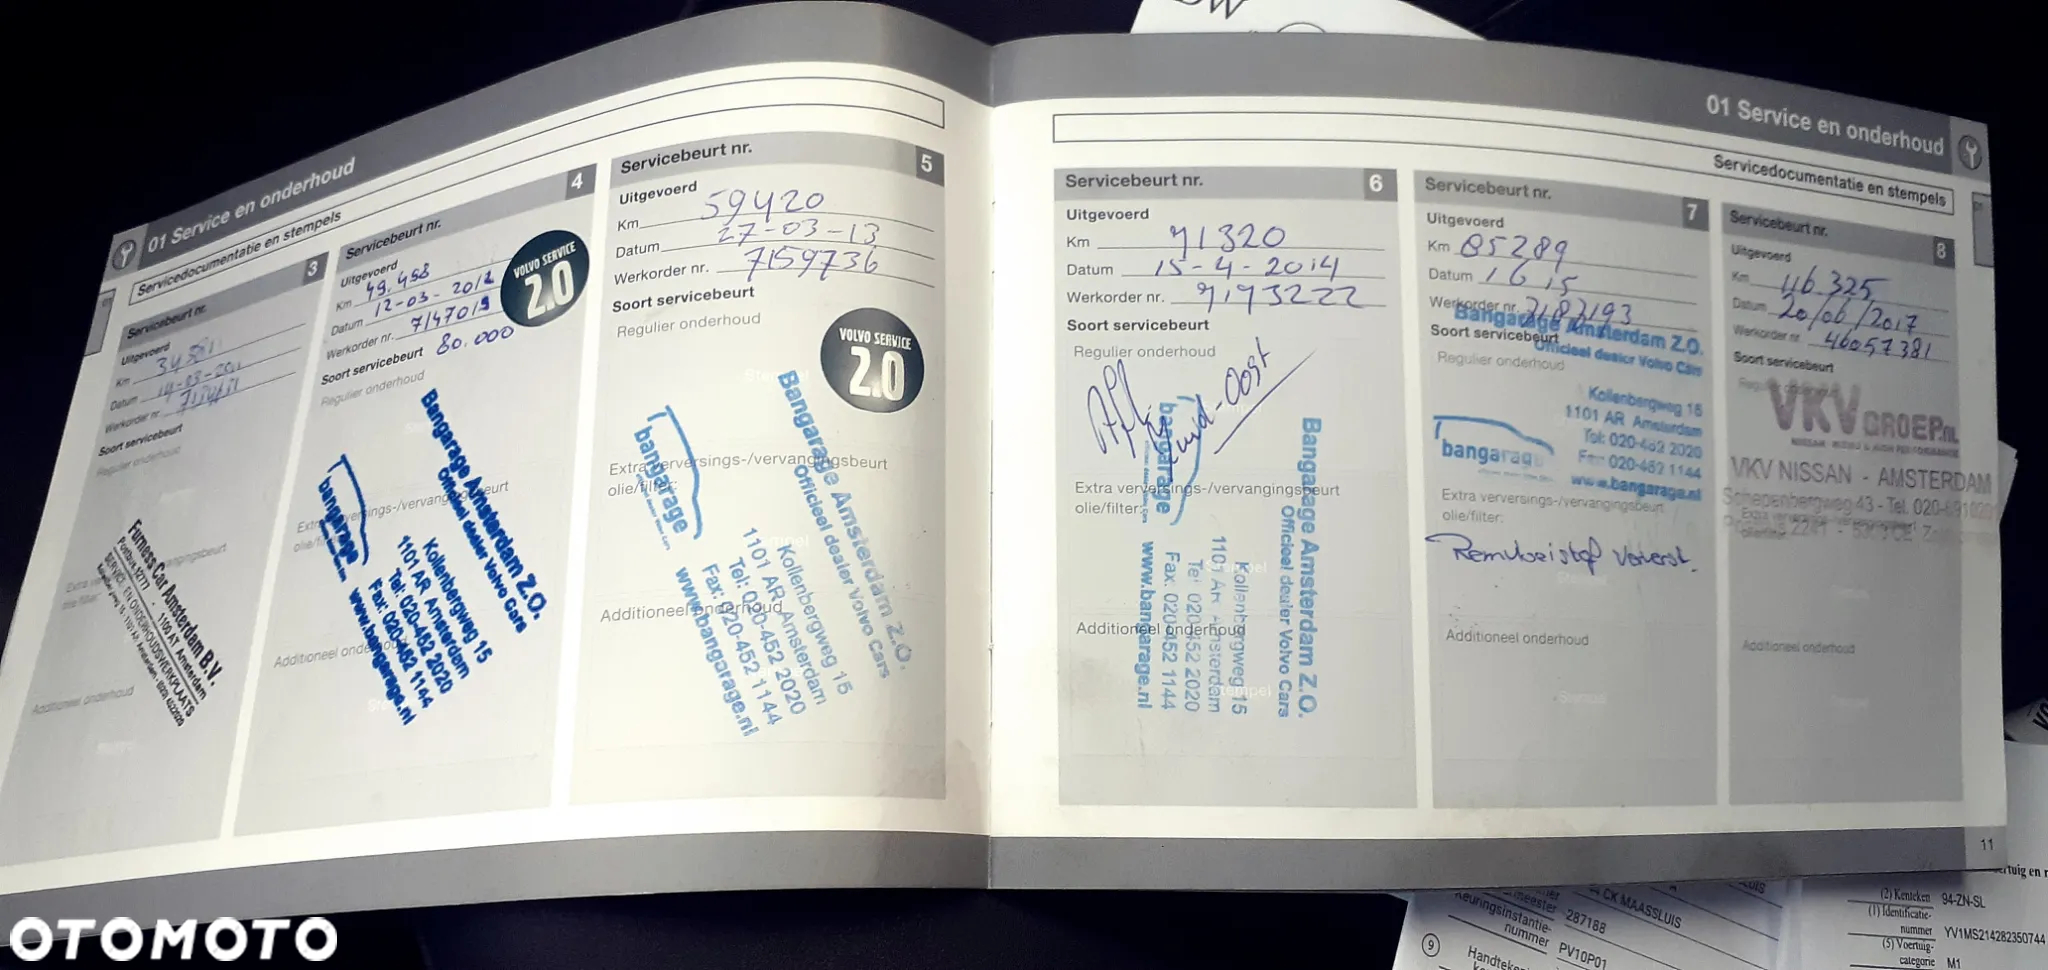 01 Service en onderhoud
Servicedocumentatie en stempels
Servicebeurt nr. 3
Uitgevoerd
Km
Datum 14-03-2011
Werkorder nr.
Soort servicebeurt
Regulier onderhoud
olie/filter:
Furness Car Amsterdam B.V.
Postbus 12777 - 1100 AT Amsterdam
SERVICE EN ONDERHOUDSWERKPLAATS
Additioneel onderhoud
Servicebeurt nr. 4
Uitgevoerd
Km 49.458
Datum 12-03-2012
Werkorder nr. 7147019
Soort servicebeurt 80.000
Regulier onderhoud
VOLVO SERVICE
2.0
Extra verversings-/vervangingsbeurt
olie/filter:
bangarage
Bangarage Amsterdam Z.O.
Officieel dealer Volvo Cars
Kollenbergweg 15
1101 AR Amsterdam
Tel: 020-452 2020
Fax: 020-452 1144
www.bangarage.nl
Additioneel onderhoud
Servicebeurt nr. 5
Uitgevoerd
Km 59420
Datum 27-03-13
Werkorder nr. 7159736
Soort servicebeurt
Regulier onderhoud
VOLVO SERVICE
2.0
Stempel
Extra verversings-/vervangingsbeurt
olie/filter:
bangarage
Bangarage Amsterdam Z.O.
Officieel dealer Volvo Cars
Kollenbergweg 15
1101 AR Amsterdam
Tel: 020-452 2020
Fax: 020-452 1144
www.bangarage.nl
Additioneel onderhoud
01 Service en onderhoud
Servicedocumentatie en stempels
Servicebeurt nr. 6
Uitgevoerd
Km 71320
Datum 15-4-2014
Werkorder nr. 7173222
Soort servicebeurt
Regulier onderhoud
Zuid-Oost
Extra verversings-/vervangingsbeurt
olie/filter:
bangarage
Bangarage Amsterdam Z.O.
Officieel dealer Volvo Cars
Kollenbergweg 15
1101 AR Amsterdam
Tel: 020-452 2020
Fax: 020-452 1144
www.bangarage.nl
Additioneel onderhoud
Stempel
Servicebeurt nr. 7
Uitgevoerd
Km 85289
Datum 1 6 15
Werkorder nr. 7183193
Soort servicebeurt
Bangarage Amsterdam Z.O.
Officieel dealer Volvo Cars
Regulier onderhoud
Kollenbergweg 15
1101 AR Amsterdam
Tel: 020-452 2020
Fax: 020-452 1144
www.bangarage.nl
bangarage
Extra verversings-/vervangingsbeurt
olie/filter:
Remvloeistof ververst.
Stempel
Additioneel onderhoud
Stempel
Servicebeurt nr. 8
Uitgevoerd
Km 116.325
Datum 20/06/2017
Werkorder nr. 46057381
Soort servicebeurt
VKV GROEP.NL
VKV NISSAN - AMSTERDAM
Schepenbergweg 43 - Tel. 020-
Additioneel onderhoud
11
CK MAASSLUIS
287188
Keuringsinstantie-
nummer PV10P01
9 Handteken
(2) Kenteken 94-ZN-SL
(1) Identificatie-
nummer YV1MS214282350744
(5) Voertuig-
categorie M1
OTOMOTO